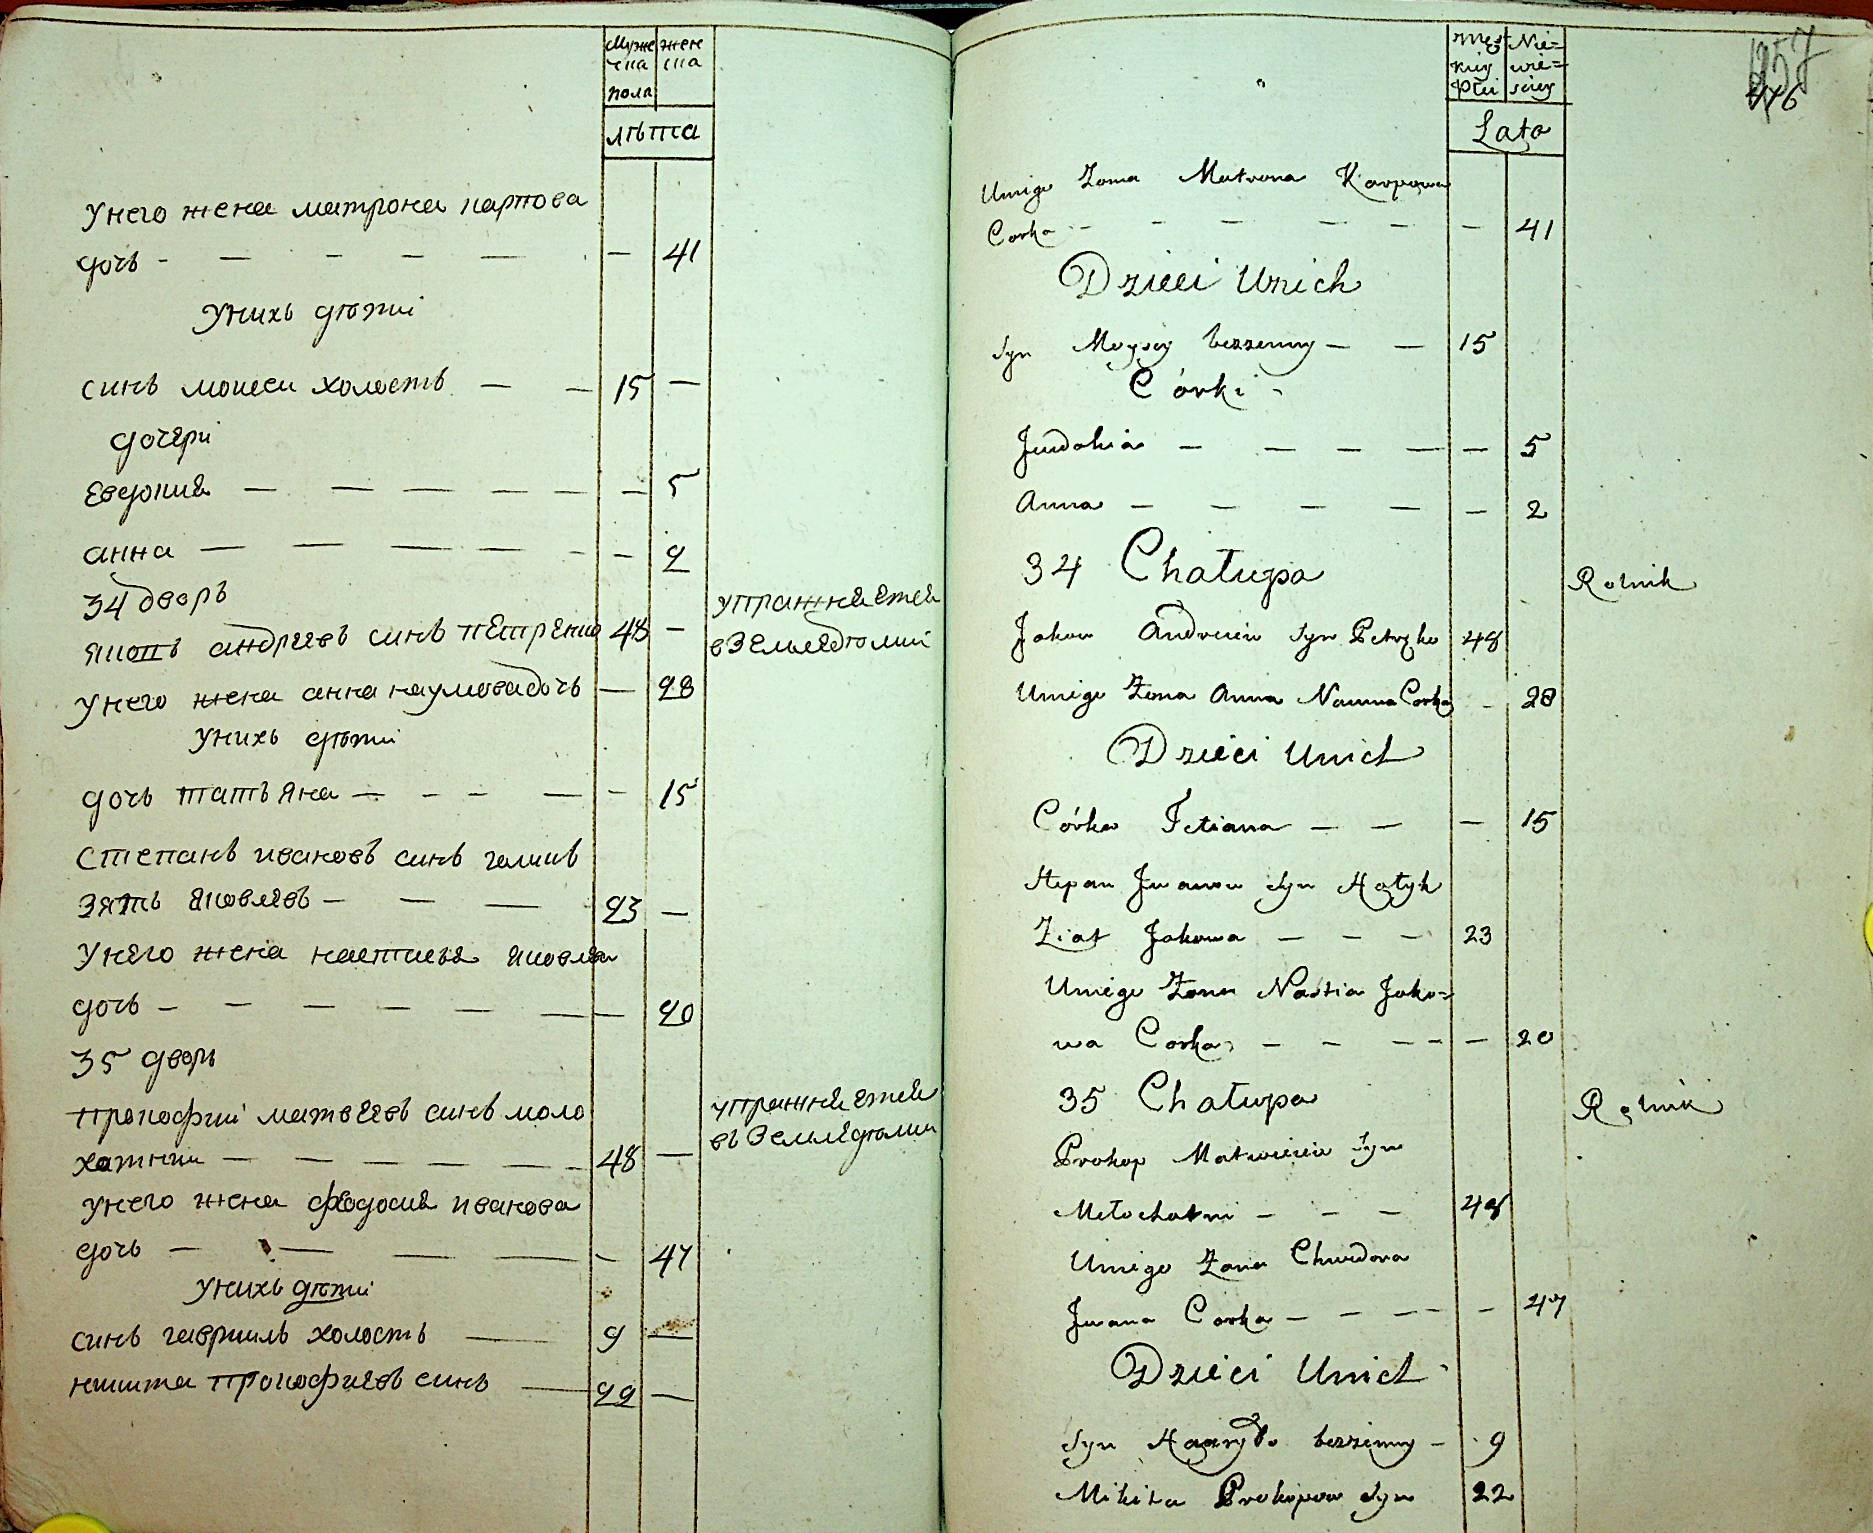 Муже
ска
пола
жен
ска
лѣта
У него жена матрона карпова
дочь - - - - - - 41
У нихъ дѣти
синъ моисеи холостъ - - 15 -
дочери
Евдокия - - - - - - 5
анна - - - - - - 2
34 дворъ
Яковъ андреевъ синъ петренко 48 -
упражняется
в Земледѣлии
У него жена анна наумова дочь - 28
У нихъ дѣти
дочь татьяна - - - - - 15
Степанъ ивановъ синъ
зять Яковлевъ - - - 23 -
У него жена настасия яковлева
дочь - - - - - - - 20
35 дворъ
прокофий матвеевъ синъ моло
упражняется
въ Земледѣлии
хатний - - - - - - 48 -
у него жена феодосия иванова
дочь - - - - - 47
У нихъ дѣти
синъ гавриилъ холостъ - 9 -
никита прокофиевъ синъ - 22 -
męz
kiey
płci
Nie=
wie=
sciey
Lata
257
476
Uniego Żona Matrona Karpowa
Corka - - - - - - 41
Dzieci Unich
Syn Moysey bezzenny - - 15
Córki -
Jewdokia - - - - - 5
Anna - - - - - 2
34 Chałupa
Rolnik
Jakow Andreiew Syn Petrzko 48
Uniego Żona Anna Nauma Corka - 28
Dzieci Unich
Córka Tetiana - - - 15
Stepan Iwanow Syn
Ziat Jakowa - - - 23
Uniego Żona Nastia Jako=
wa Corka - - - - - 20
35 Chałupa
Rolnik
Prokop Matwieiew Syn
Mełochatni - - - 48
Uniego Żona Chwedora
Iwana Corka - - - - - 47
Dzieci Unich
Syn Hawryło bezzenny - 9
Mikita Prokopow Syn 22